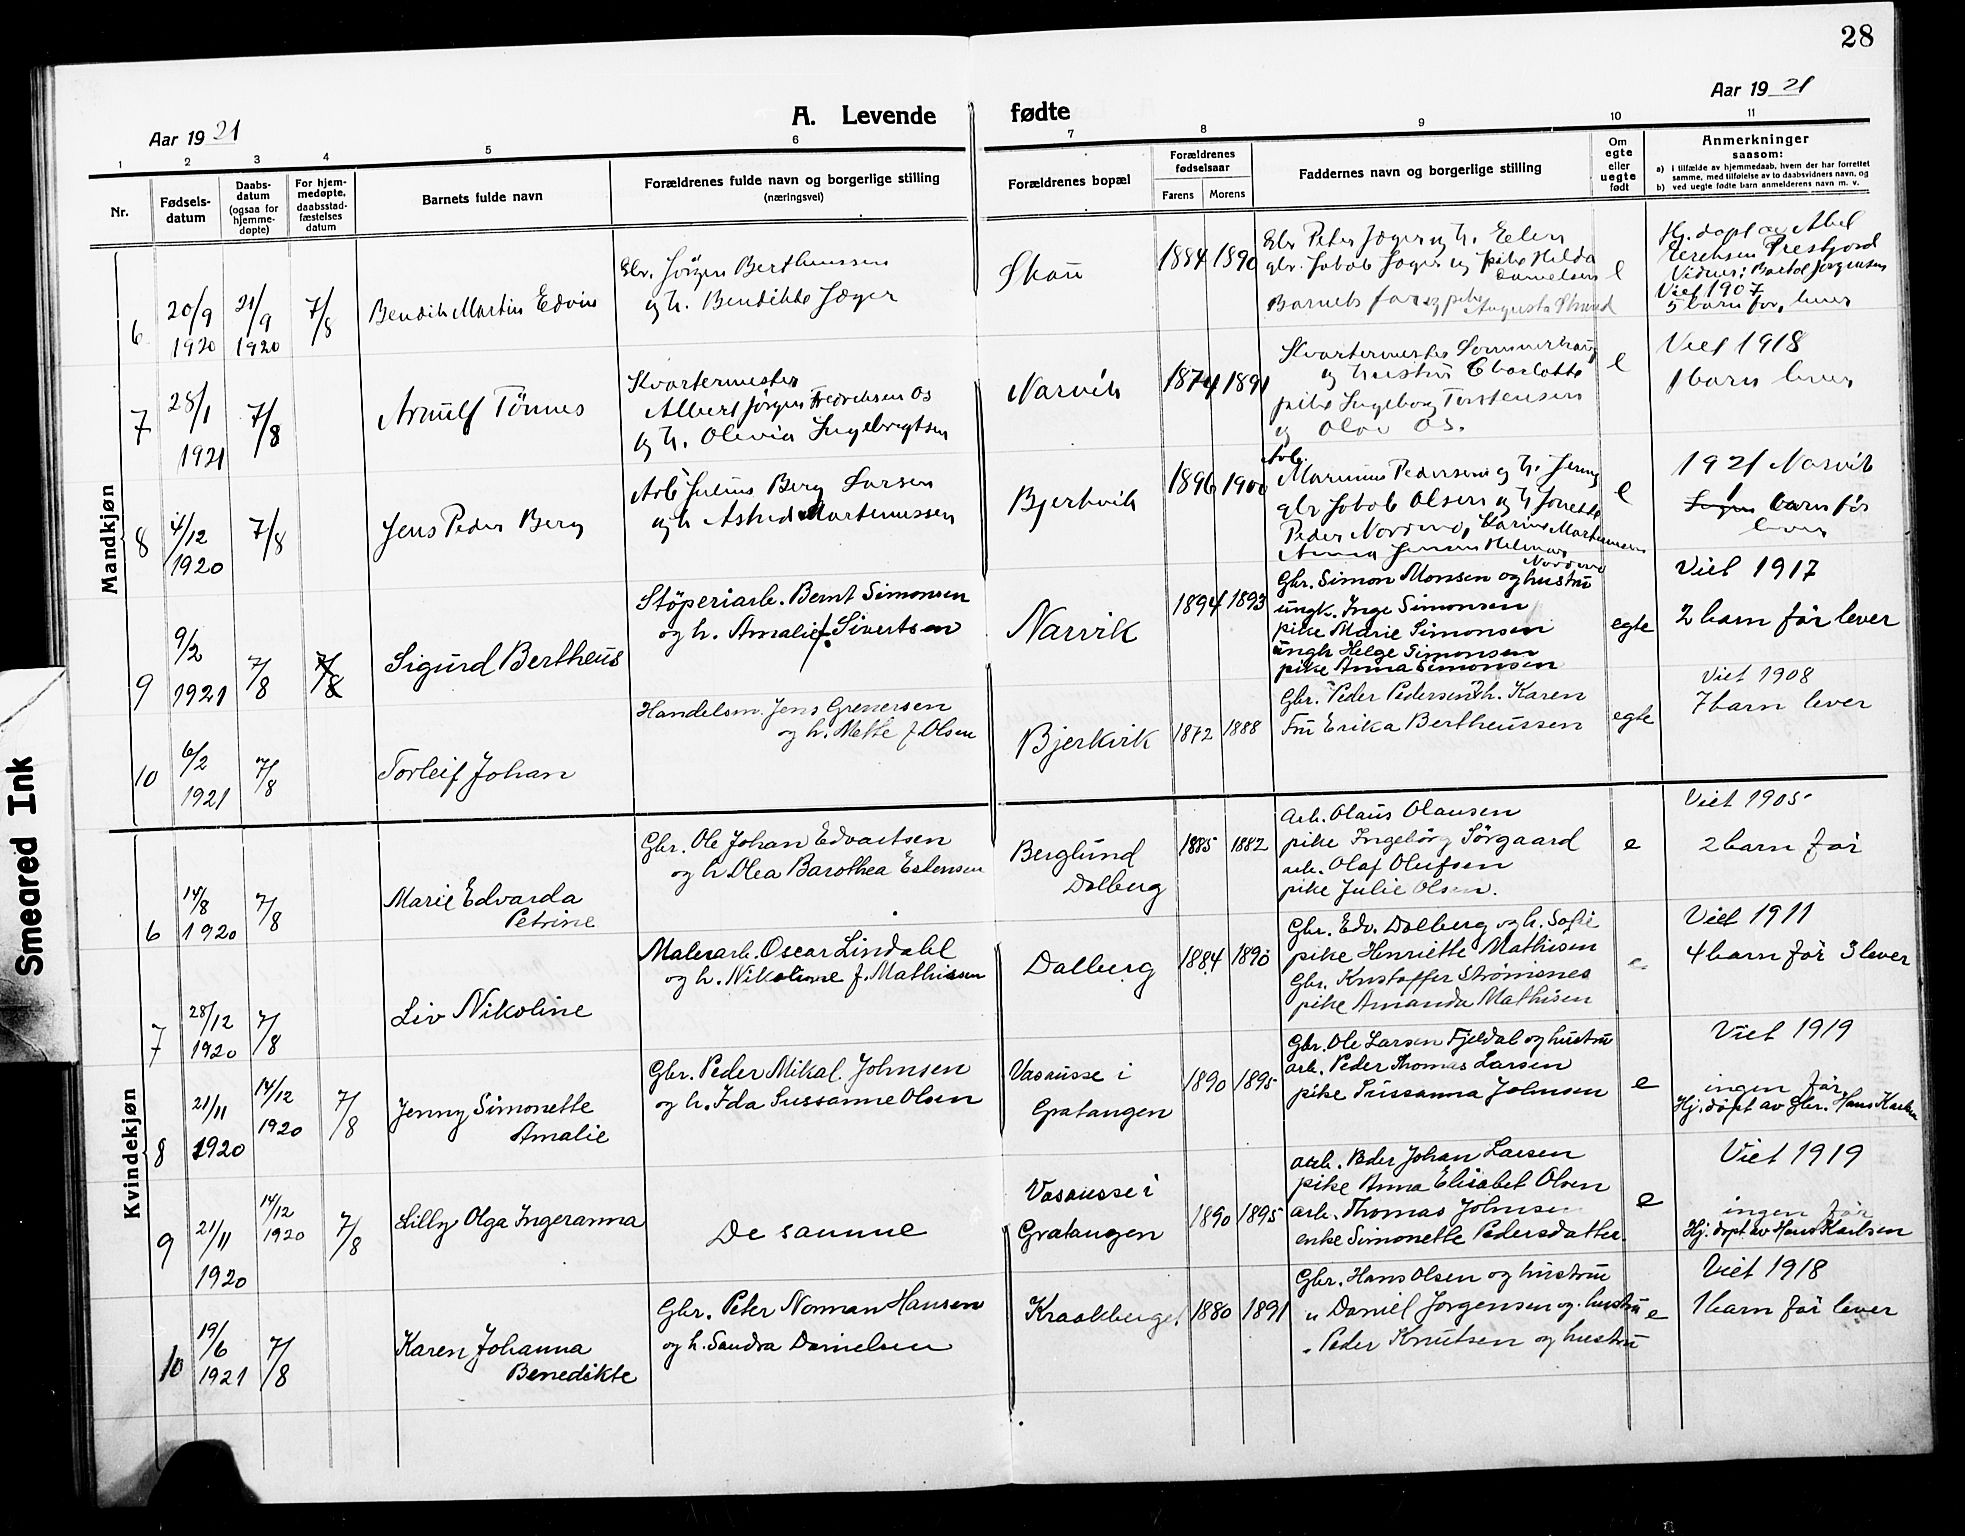 28
Aar 19 21
A. Levende fødte
Aar 19 21
1 2 3 4 5 6 7 8 9 10 11
Nr.
Fødsels-
datum
Daabs-
datum
(ogsaa for
hjemme-
døpte)
For hjem-
medøpte,
daabsstad-
fæstelses
datum
Barnets fulde navn
Forældrenes fulde navn og borgerlige stilling
(næringsvei)
Forældrenes bopæl
Forældrenes
fødselsaar
Farens Morens
Faddernes navn og borgerlige stilling
Om
egte
eller
uegte
født
Anmerkninger
saasom:
a) i tilfælde av hjemmedaab, hvem der har forrettet
samme, med tilføielse av to daabsvidners navn, og
b) ved uegte fødte barn anmelderens navn m. v.
Mandkjøn
6
20/9
1920
21/9
1920
7/8
Bendik Martin Edvin
Gbr. Jörgen Bertheussen
og h. Bendikte Jæger
1884 1890
Gbr Peter Jæger og h. Elen
gbr. Jakob Jæger og pike Hilda
Danielsen
Barnets far og pike Augusta
e
Hj. døpt av Abel
Vidner: Bartol Jørgensen
Viet 1907
5 barn før, lever
7
28/1
1921
7/8
Arnulf Tönnes
Kvartermester
Albert Jörgen Fredriksen Os
og h. Olevia Ingebrigtsen
Narvik
1874 1891
Kvartermester
og hustru Charlotte
pike Ingeborg Torstensen
og Olav Os.
e
Viet 1918
1 barn lever
8
4/12
1920
7/8
Jens Peder Berg
Arb Julius Berg Larsen
og h Astrid Martenussen
Bjerkvik
1896 1900
Arb.
Marinus Pedersen og h. Jenny
gbr Jakob Olsen og h
Peder Nordmo, Karine Martenussen
Anna Jensen Helmar
Nordmo
e
1921 Narvik
barn før
lever
9
9/2
1921
7/8
7/8
Sigurd Bertheus
Stöperiarb. Bernt Simonsen
og h. Amalie f. Sivertsen
Narvik
1894 1893
Gbr. Simon Monsen og hustru
ungk. Inge Simonsen
pike Marie Simonsen
ungk Helge Simonsen
pike Anna Simonsen
egte
Viet 1917
2 barn før lever
10
6/2
1921
7/8
Torleif Johan
Handelsm. Jens Grenersen
og h. Mette f. Olsen
Bjerkvik
1872 1888
Gbr. Peder Pedersen h. Karen
Fru Erika Bertheussen
egte
Viet 1908
7 barn lever
Kvindekjøn
6
14/8
1920
7/8
Marie Edvarda
Petrine
Gbr. Ole Johan Edvartsen
og h Olea Barothea Estensen
Berglund
Dalberg
1885 1882
Arb. Olaus Olausen
pike Ingebörg Sörgaard
arb. Olaf Olufsen
pike Julie Olsen.
e
Viet 1905
2 barn før
7
28/12
1920
7/8
Liv Nikoline
Malerarb. Oscar Lindahl
og h. Nikoline f. Mathissen
Dalberg
1884 1890
Gbr. Edv. Dalberg og h. Sofie
pike Henriette Mathisen
Gbr. Kristoffer Strömsnes
pike Amanda Mathisen
e
Viet 1911
4 barn før 3 lever
8
21/11
1920
14/12
1920
7/8
Jenny Simonette
Amalie
Gbr. Peder Mikal. Johnsen
og h. Ida Sussanne Olsen
Vasausse i
Gratangen
1890 1895
Gbr. Ole Larsen Fjeldal og hustru
arb. Peder Thomas Larsen
pike Sussanna Johnsen
e
Viet 1919
ingen før,
Hj. døpt av Gbr. Hans Karlsen
9
21/11
1920
14/12
1920
7/8
Lilly Olga Ingeranna
De samme
Vasausse i
Gratangen
1890 1895
Arb. Peder Johan Larsen
pike Anna Elisabet Olsen
arb. Thomas Johnsen
enke Simonette Pedersdatter
e
Viet 1919
ingen før
Hj. døpt av Hans Karlsen
10
19/6
1921
7/8
Karen Johanna
Benedikte
Gbr. Peter Norman Hansen
og h. Sandra Danielsen
Kraakberget
1880 1891
Gbr. Hans Olsen og hustru
" Daniel Jørgensen og hustru
" Peder Knutsen og hustru
e
Viet 1918
1 barn før lever
Smeared Ink